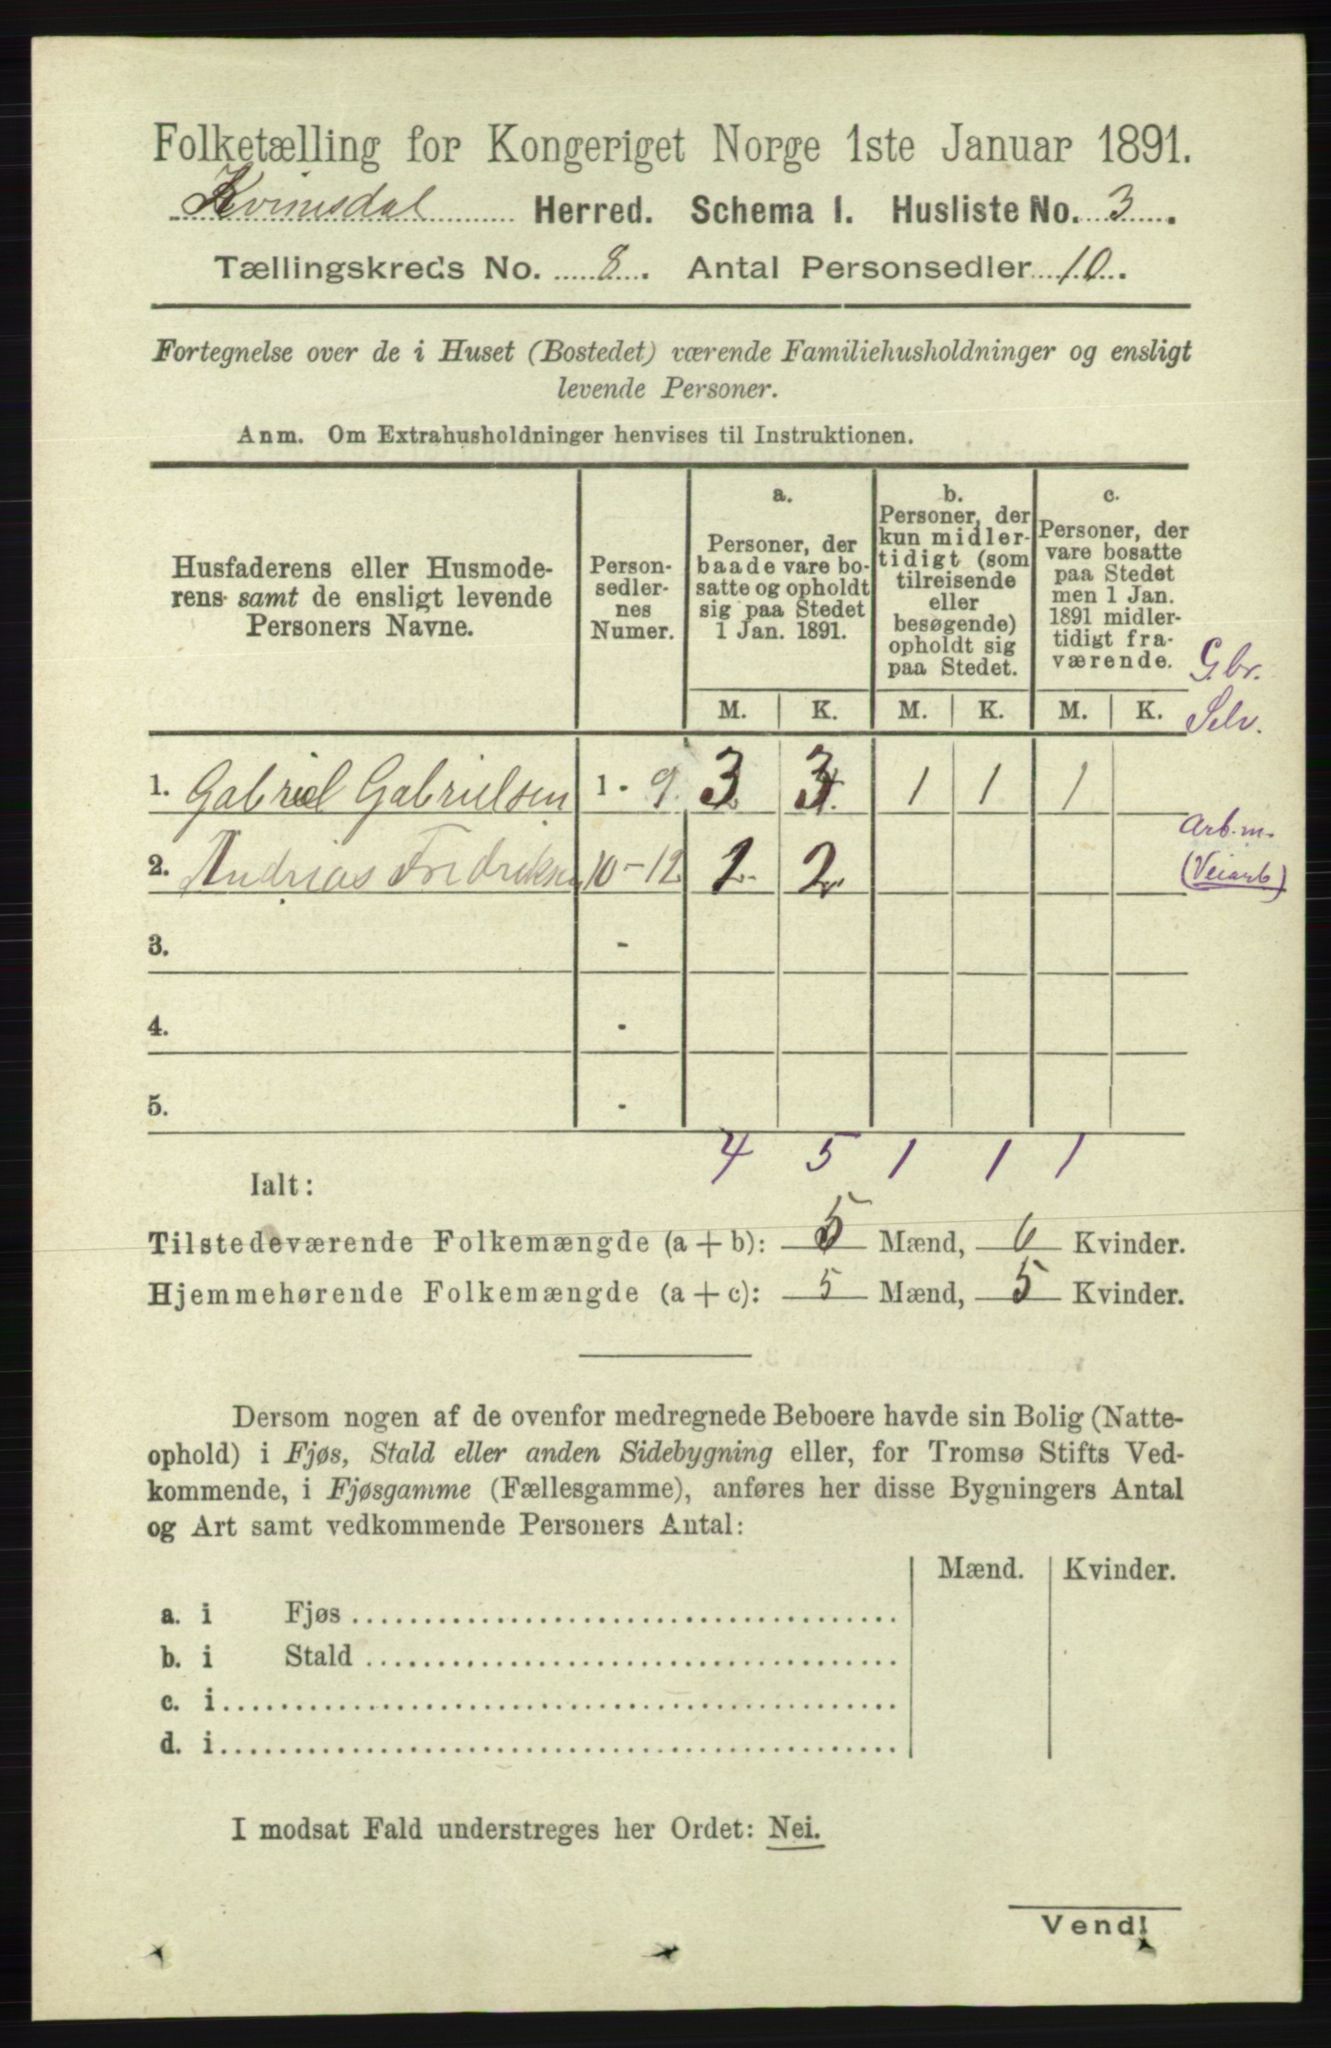 Folketælling for Kongeriget Norge 1ste Januar 1891.
Kvinesdal Herred. Schema I. Husliste No. 3.
Tællingskreds No. 8. Antal Personsedler 10.
Fortegnelse over de i Huset (Bostedet) værende Familiehusholdninger og ensligt
levende Personer.
Anm. Om Extrahusholdninger henvises til Instruktionen.
Husfaderens eller Husmode-
rens samt de ensligt levende
Personers Navne.
Person-
sedler-
nes
Numer.
a.
Personer, der
baade vare bo-
satte og opholdt
sig paa Stedet
1 Jan. 1891.
b.
Personer, der
kun midler-
tidigt (som
tilreisende
eller
besøgende)
opholdt sig
paa Stedet.
c.
Personer, der
vare bosatte
paa Stedet
men 1 Jan.
1891 midler-
tidigt fra-
værende.
Gbr.
Selv.
M. K. M. K. M. K.
1. Gabriel Gabrielsen 1 - 9 3 3 1 1 1
Arb.m.
(Veiarb)
2. Andrias Fredriksen 10-12 1 2
3. -
4. -
5. -
4 5 1 1 1
Ialt:
Tilstedeværende Folkemængde (a + b): 5 Mænd, 6 Kvinder.
Hjemmehørende Folkemængde (a + c): 5 Mænd, 5 Kvinder.
Dersom nogen af de ovenfor medregnede Beboere havde sin Bolig (Natte-
ophold) i Fjøs, Stald eller anden Sidebygning eller, for Tromsø Stifts Ved-
kommende, i Fjøsgamme (Fællesgamme), anføres her disse Bygningers Antal
og Art samt vedkommende Personers Antal:
Mænd. Kvinder.
a. i Fjøs
b. i Stald
c. i
d. i
I modsat Fald understreges her Ordet: Nei.
Vend!